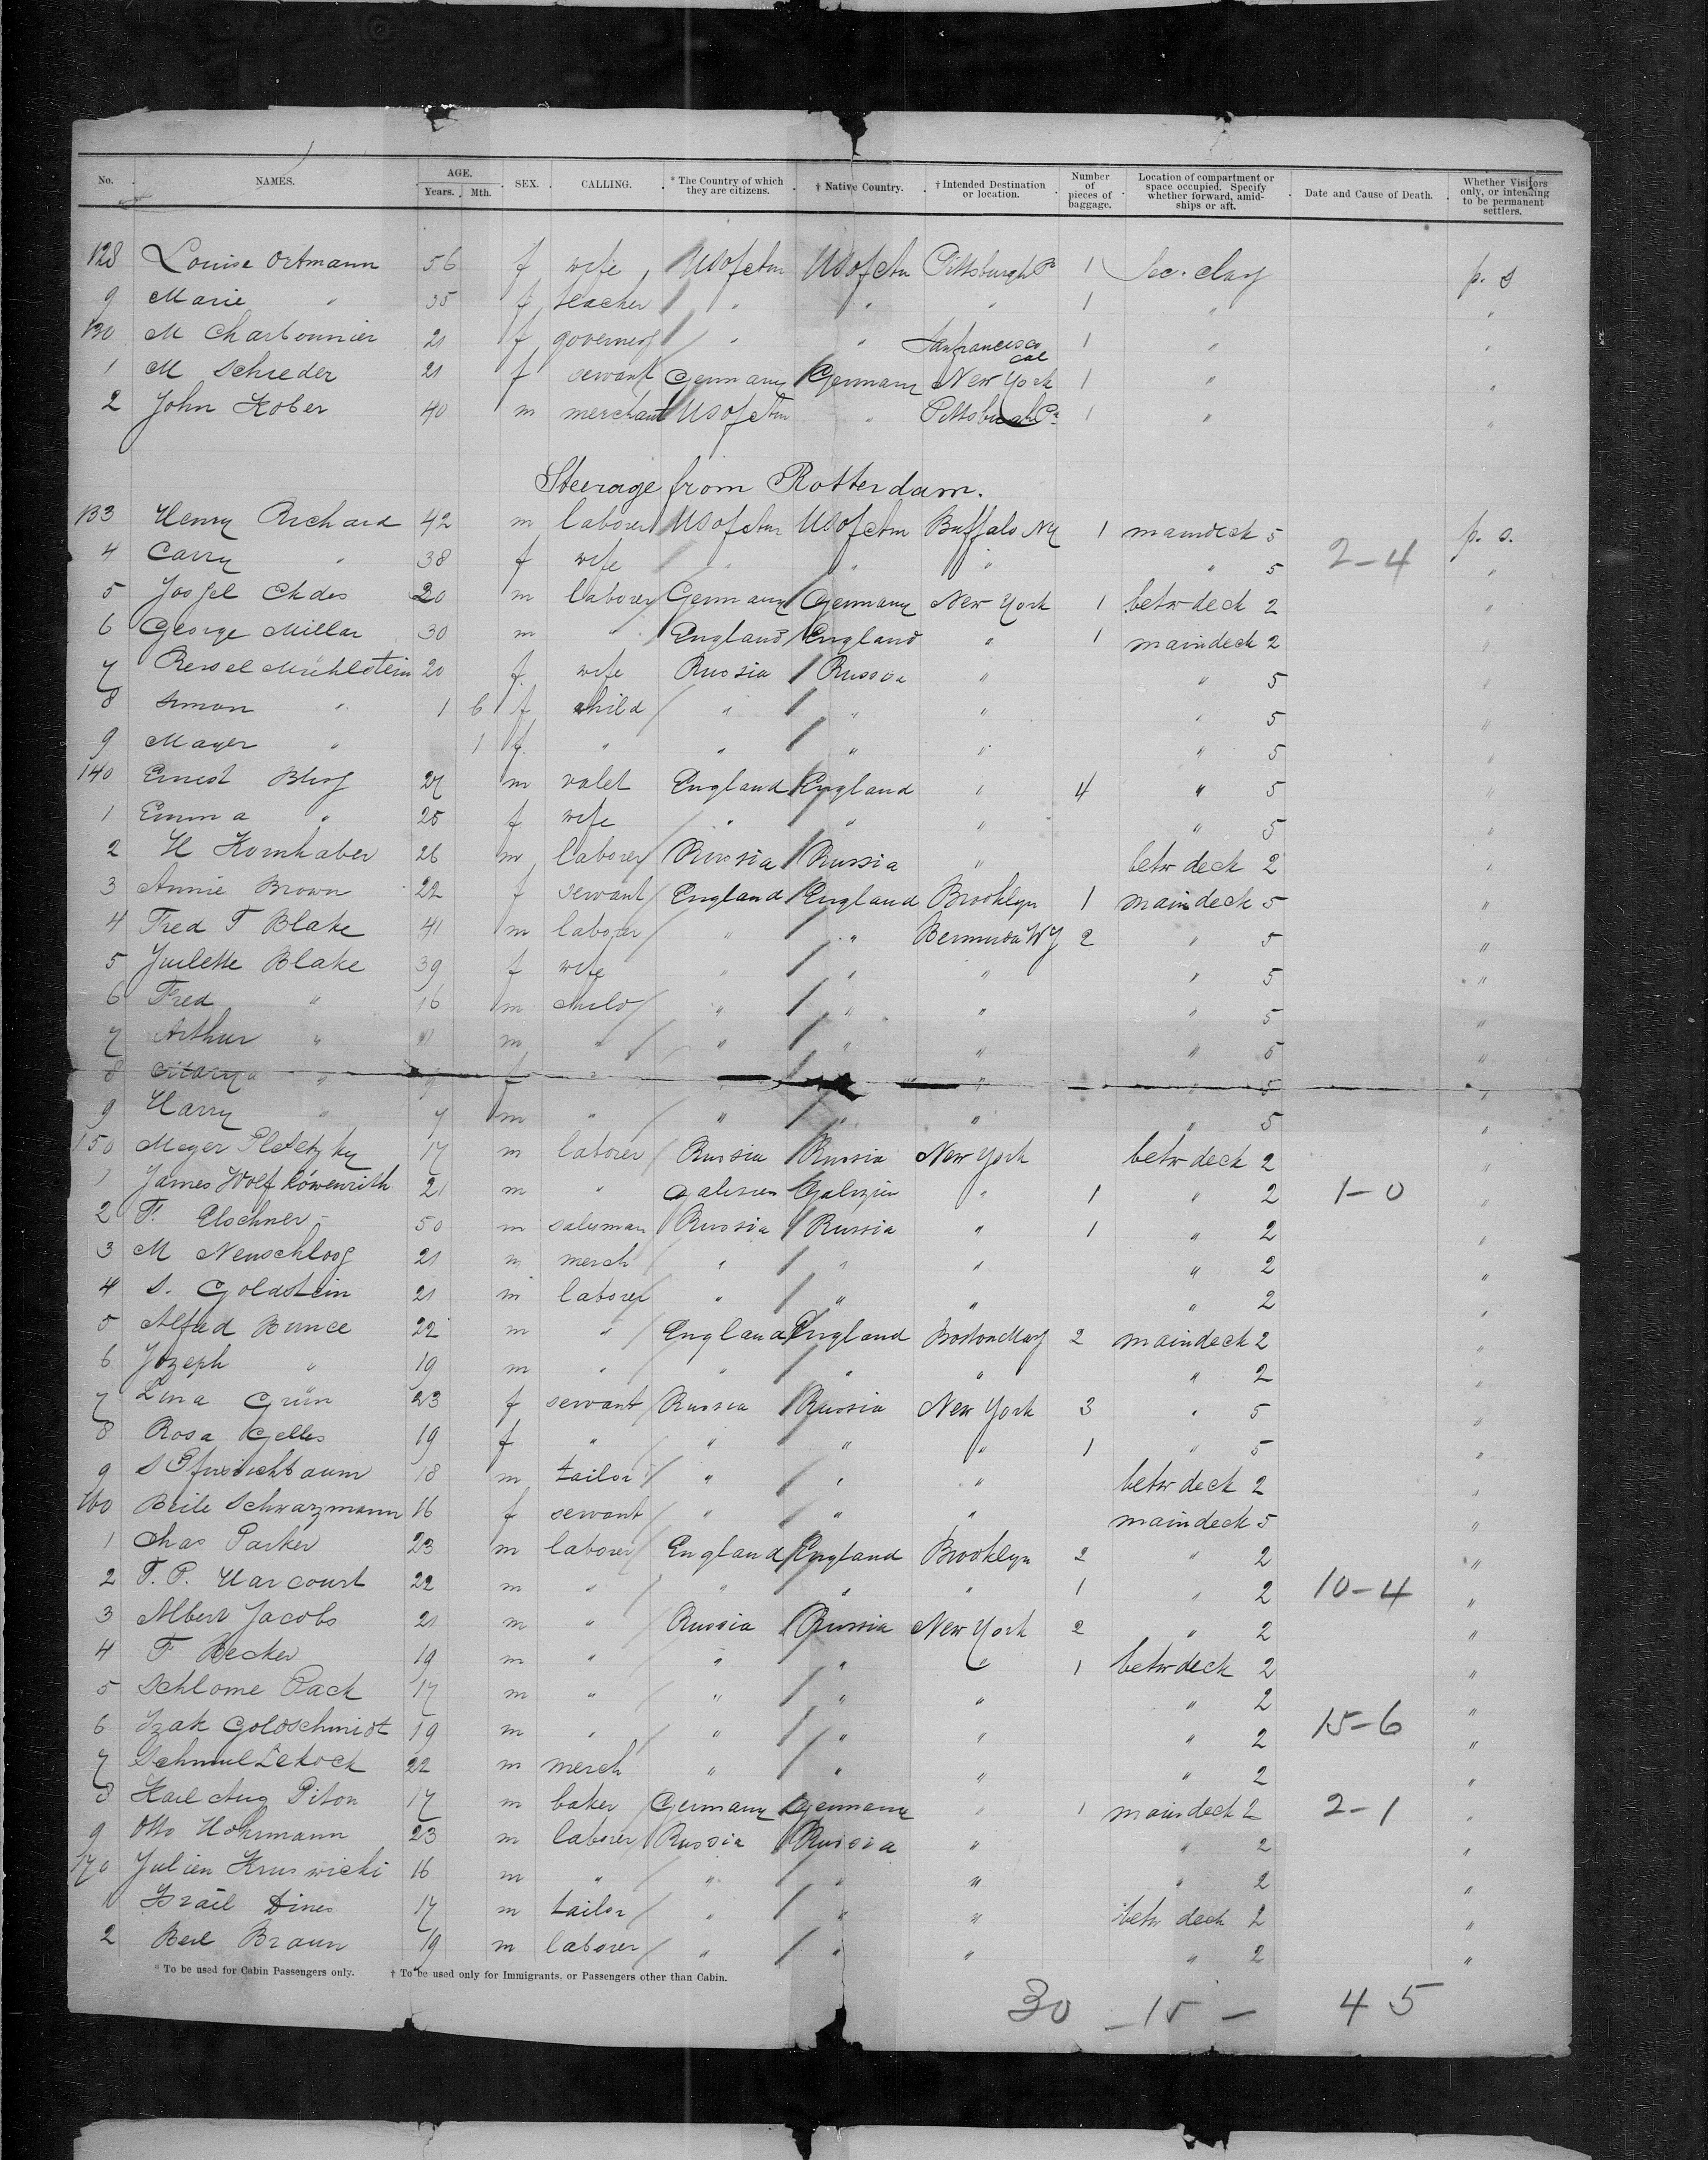 No. NAMES. AGE. Years. Mth. SEX. CALLING. * The Country of which they are citizens. † Native Country. † Intended Destination or location. Number of pieces of baggage. Location of compartment or space occupied. Specify whether forward, amidships or aft. Date and Cause of Death. Whether Visitors only, or intending to be permanent settlers.
128 Louise Ortmann 56 f wife US of Am US of Am Pittsburgh Pa 1 Sec. class p. s
9 Marie " 35 f teacher " " " 1 " "
130 M Charbonnier 21 f governess " " San francisco cal 1 " "
1 M Schreder 21 f servant Germany Germany New York 1 " "
2 John Kober 40 m merchant US of Am " Pittsburgh Pa 1 " "
Steerage from Rotterdam.
133 Henry Richard 42 m laborer US of Am US of Am Buffalo NY 1 maindeck 5 p. s.
4 Carry " 38 f wife " " " " 5 2-4 "
5 20 m laborer Germany Germany New York 1 betw deck 2 "
6 George Millar 30 m " England England " 1 maindeck 2 "
7 Mühlstein 20 f. wife Russia Russia " " 5 "
8 Simon " 1 6 f child " " " " 5 "
9 Mayer " 1 f. " " " " " 5 "
140 Ernest 27 m valet England England " 4 " 5 "
1 Emma " 25 f wife " " " " 5 "
2 H Kornhaber 26 m laborer Russia Russia " betw deck 2 "
3 Annie Brown 22 f servant England England Brooklyn 1 maindeck 5 "
4 Fred T Blake 41 m laborer " " Bermuda 2 " 5 "
5 Juilette Blake 39 f wife " " " " 5 "
6 Fred " 16 m child " " " " 5 "
7 Arthur " 11 m " " " " " 5 "
8 " 9 f " " " 5 "
9 Harry " 7 m " " " " " 5 "
150 Meyer 17 m laborer Russia Russia New York betw deck 2 "
1 James Wolf 21 m " Galizien Galizien " 1 " 2 1-0 "
2 F. Elschner 50 m salesman Russia Russia " 1 " 2 "
3 M Neuschloss 21 m merch " " " " 2 "
4 S. Goldstein 21 m laborer " " " " 2 "
5 Alfred Bunce 22 m " England England Boston Mass 2 maindeck 2 "
6 Jozeph " 19 m " " " " " 2 "
7 Lina Grün 23 f servant Russia Russia New York 3 " 5 "
8 Rosa Gelles 19 f " " " " 1 " 5 "
9 S 18 m tailor " " " betw deck 2 "
160 Beile Schwarzmann 16 f servant " " " maindeck 5 "
1 Chas Parker 23 m laborer England England Brooklyn 2 " 2 "
2 T. P. Harcourt 22 m " " " " 1 " 2 10-4 "
3 Albert Jacobs 21 m " Russia Russia New York 2 " 2 "
4 F Becker 19 m " " " " 1 betw deck 2 "
5 Schlome Pack 17 m " " " " " 2 "
6 Izak Goldschmidt 19 m " " " " " 2 15-6 "
7 Schmul 22 m merch " " " " 2 "
8 Karl Aug Piton 17 m baker Germany Germany " 1 maindeck 2 2-1 "
9 Otto Hohrmann 23 m laborer Russia Russia " " 2 "
170 Julien Kruswicki 16 m " " " " " 2 "
1 Israël Dines 17 m tailor " " " betw deck 2 "
2 Berl Braun 19 m laborer " " " " 2 "
* To be used for Cabin Passengers only. † To be used only for Immigrants, or Passengers other than Cabin.
30 - 15 - 45